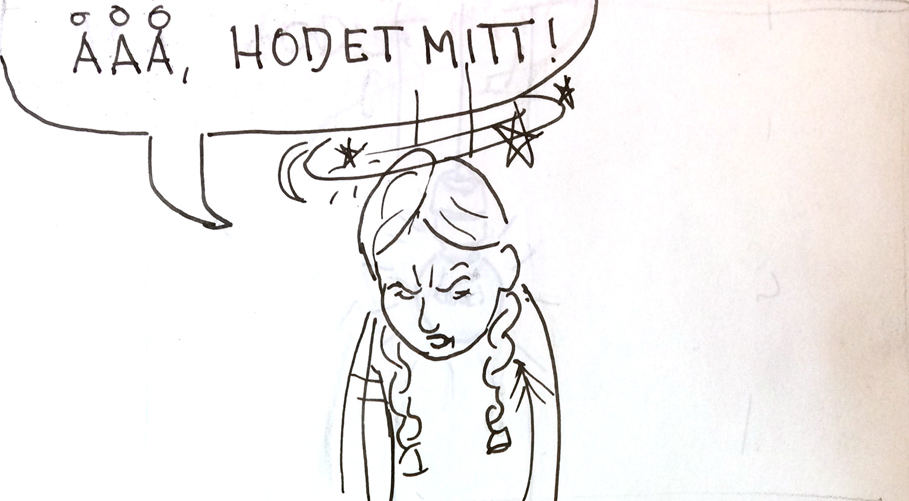 ÅÅÅ, HODET MITT!